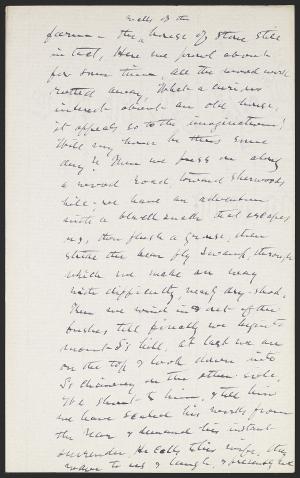 walls of the
farm - the house of stone still
intact, Here we prowl about
for some time, all the wood work
rotted away. What a curious
interest about an old house,
it appeals so to the imagination!
Will my house be thus some
day? Then we press on along
a wood road toward Sherwoods
hill; we have an adventure
with a black snake that escapes
us, then flush a grouse, then
strike the swamp, through
which we make our way
with difficulty, nearly dry-shod.
Then we wind in & out of the
bushes till finally we begin to
mount S's hill, at last we are
on the top & look down into
S's chimney on the other side,
We shout to him, & tell him
we have scaled his works from
the rear & demand his instant
surrender, He calls his wife, they
wave to us & laugh, & presently we